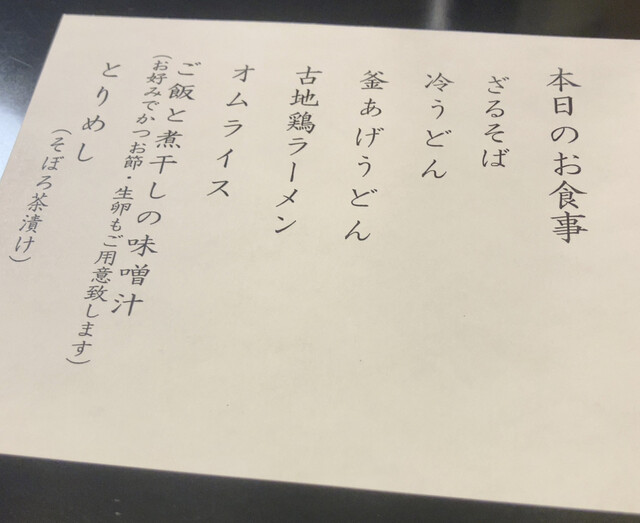 本日のお食事
ざるそば
冷うどん
釜あげうどん
古地鶏ラーメン
オムライス
ご飯と煮干しの味噌汁
(お好みでかつお節・生卵もご用意致します)
とりめし
(そぼろ茶漬け)